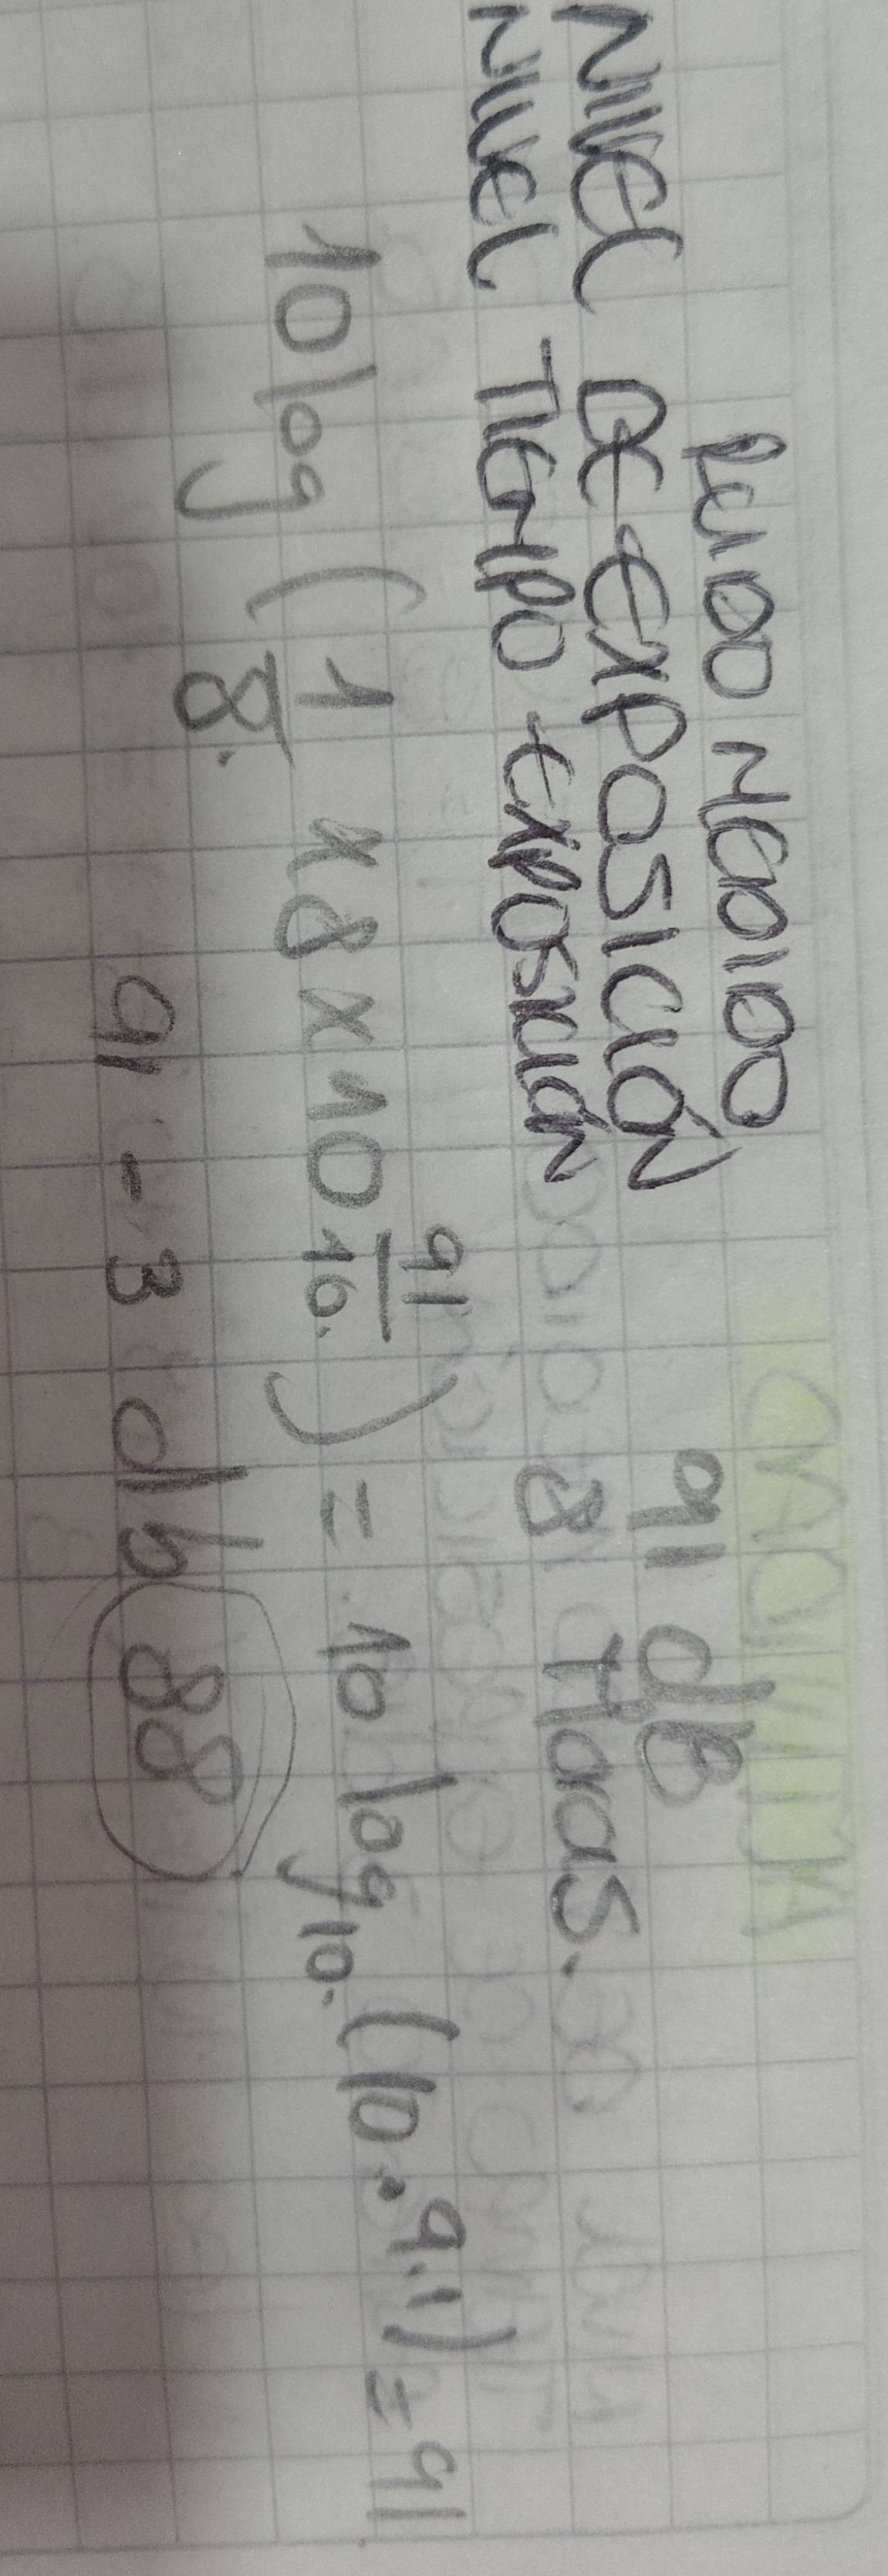 RUIDO MEDIDO
NIVEL DE EXPOSICIÓN 91 dB
NIVEL TIEMPO EXPOSICIÓN 8 Horas.
10 log ( 1/8. x 8 x 10 91/10. ) = 10 log10. (10 . 9.1) = 91.
91 - 3 db 88